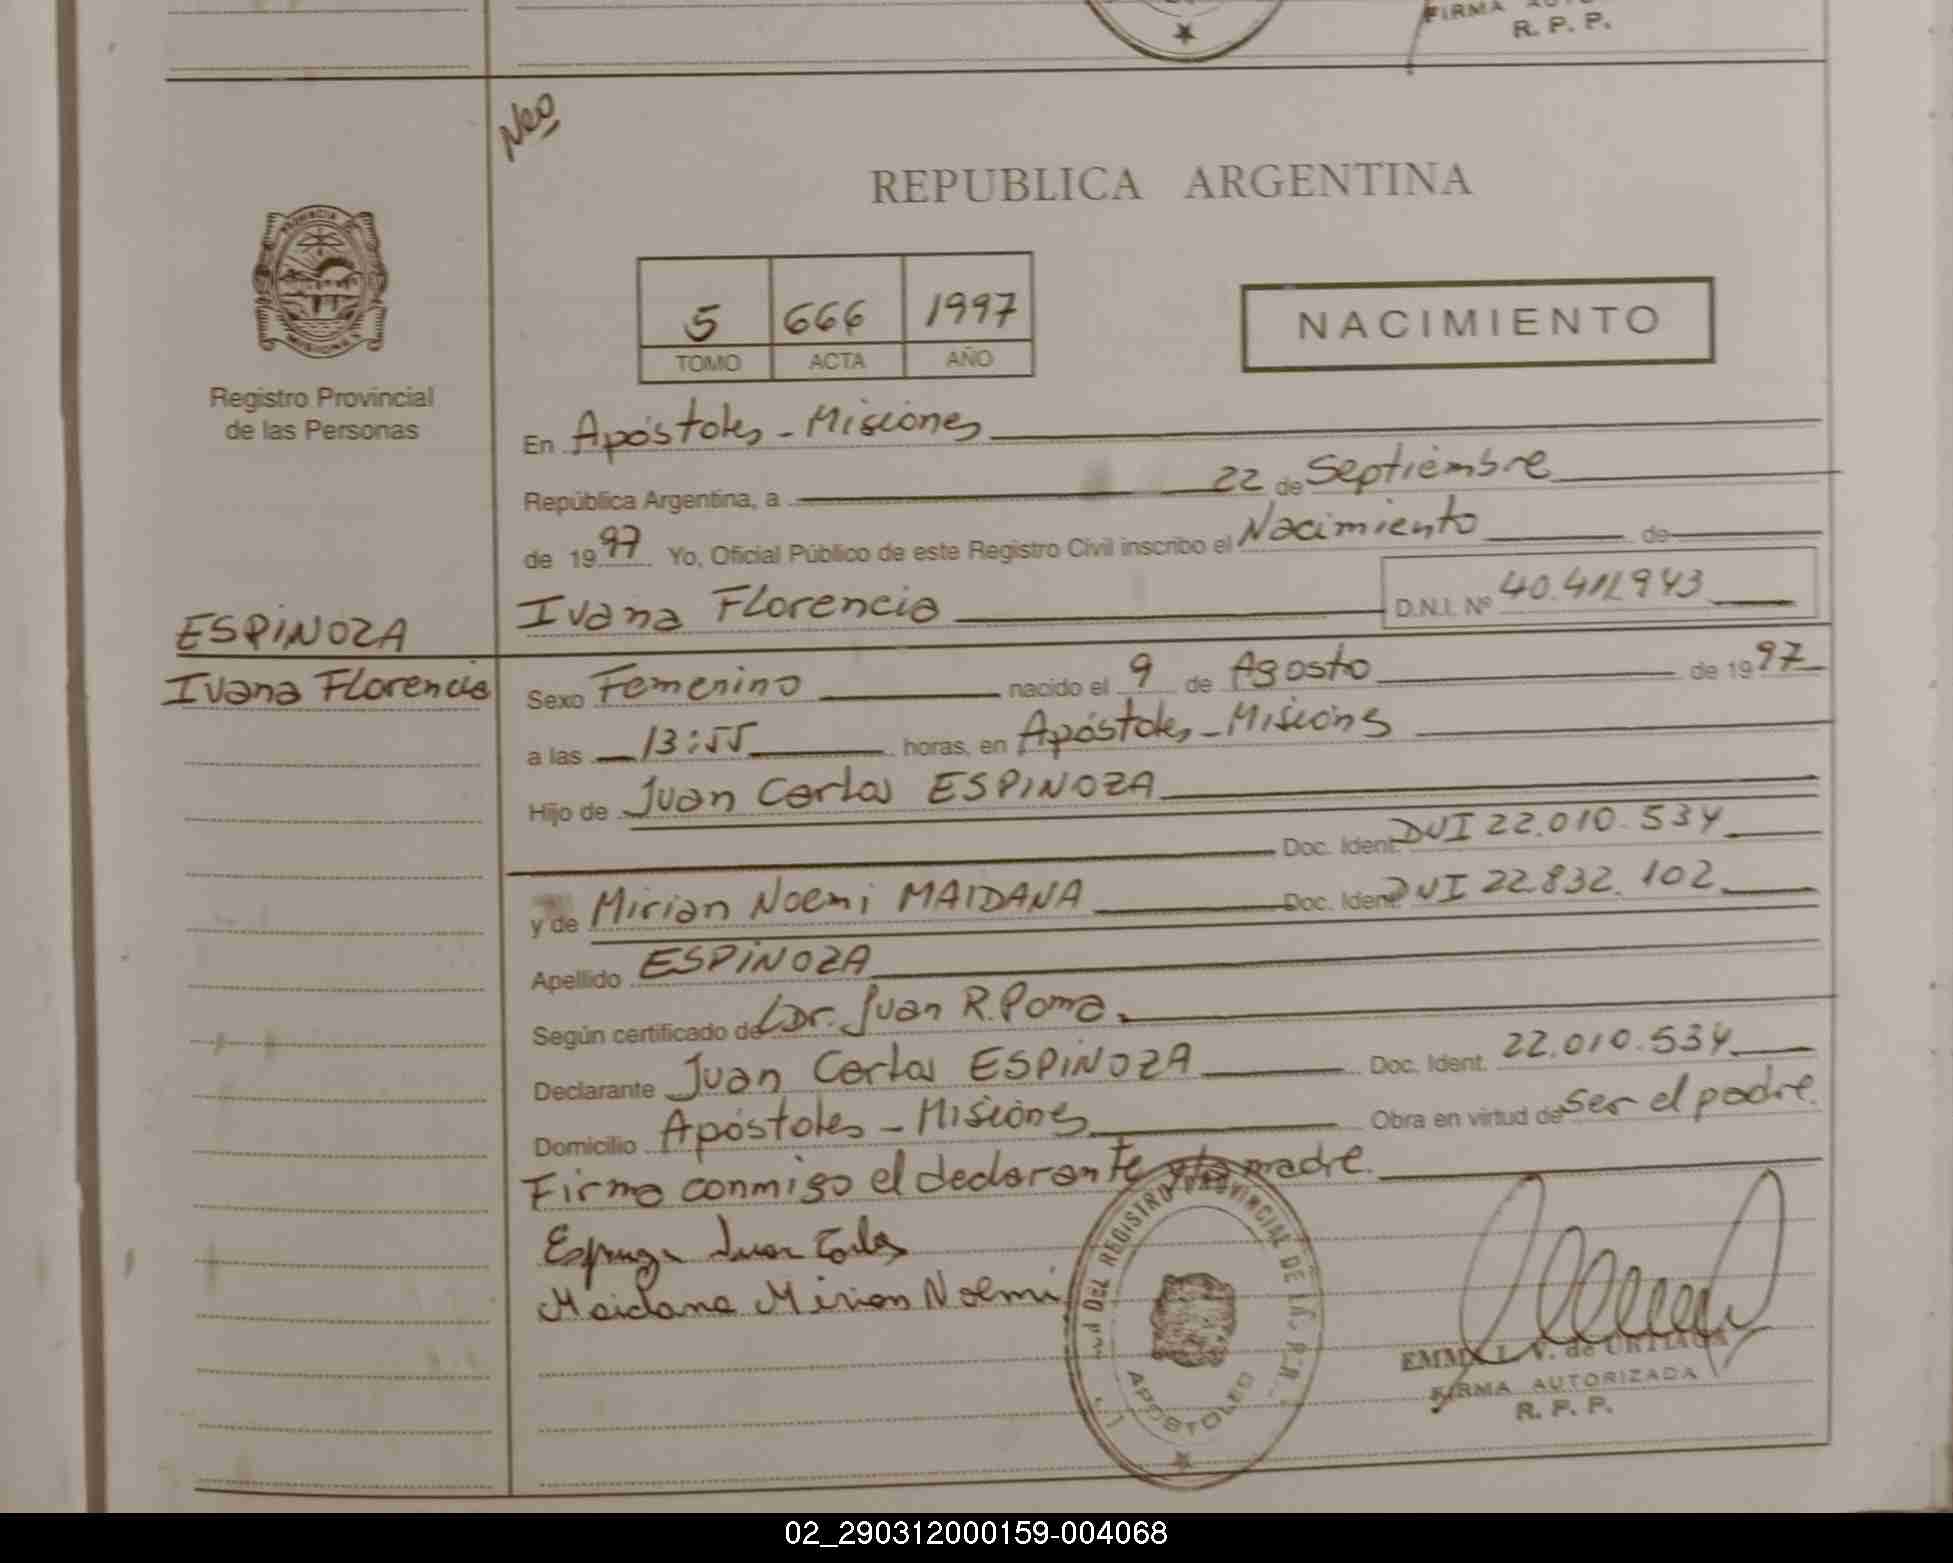 FIRMA
R. P. P.
Neo
REPUBLICA ARGENTINA
PROVINCIA DE
MISIONES
5 666 1997
TOMO ACTA AÑO
NACIMIENTO
Registro Provincial
de las Personas
En Apóstoles - Misiones
República Argentina, a 22 de Septiembre
de 1997 Yo, Oficial Público de este Registro Civil inscribo el Nacimiento de
Ivana Florencia D.N.I. Nº 40.411.943
ESPINOZA
Ivana Florencia
Sexo Femenino nacido el 9 de Agosto de 1997
a las 13:55 horas, en Apóstoles - Misiones
Hijo de Juan Carlos ESPINOZA
Doc. Ident. DNI 22.010.534
y de Mirian Noemi MAIDANA Doc. Ident. DNI 22.832.102
Apellido ESPINOZA
Según certificado del Dr. Juan R. Poma.
Declarante Juan Carlos ESPINOZA Doc. Ident. 22.010.534
Domicilio Apóstoles - Misiones Obra en virtud de ser el padre.
Firma conmigo el declarante y la madre.
Espinoza Juan Carlos
Maidana Mirian Noemi
DEL REGISTRO PROVINCIAL DE LAS
APOSTOLES
EMMA L. V. de URTIAGA
FIRMA AUTORIZADA
R. P. P.
02_290312000159-004068